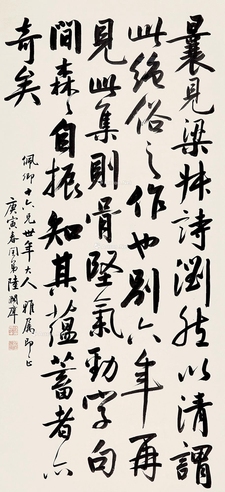 曩见梁妹詩瀏然以清謂
此絶俗之作也別六年再
見此集則骨堅氣勁字句
間森森自振知其蘊蓄者六
奇矣
佩卿十六兄世年大人雅屬即正
庚寅春同弟陸潤庠